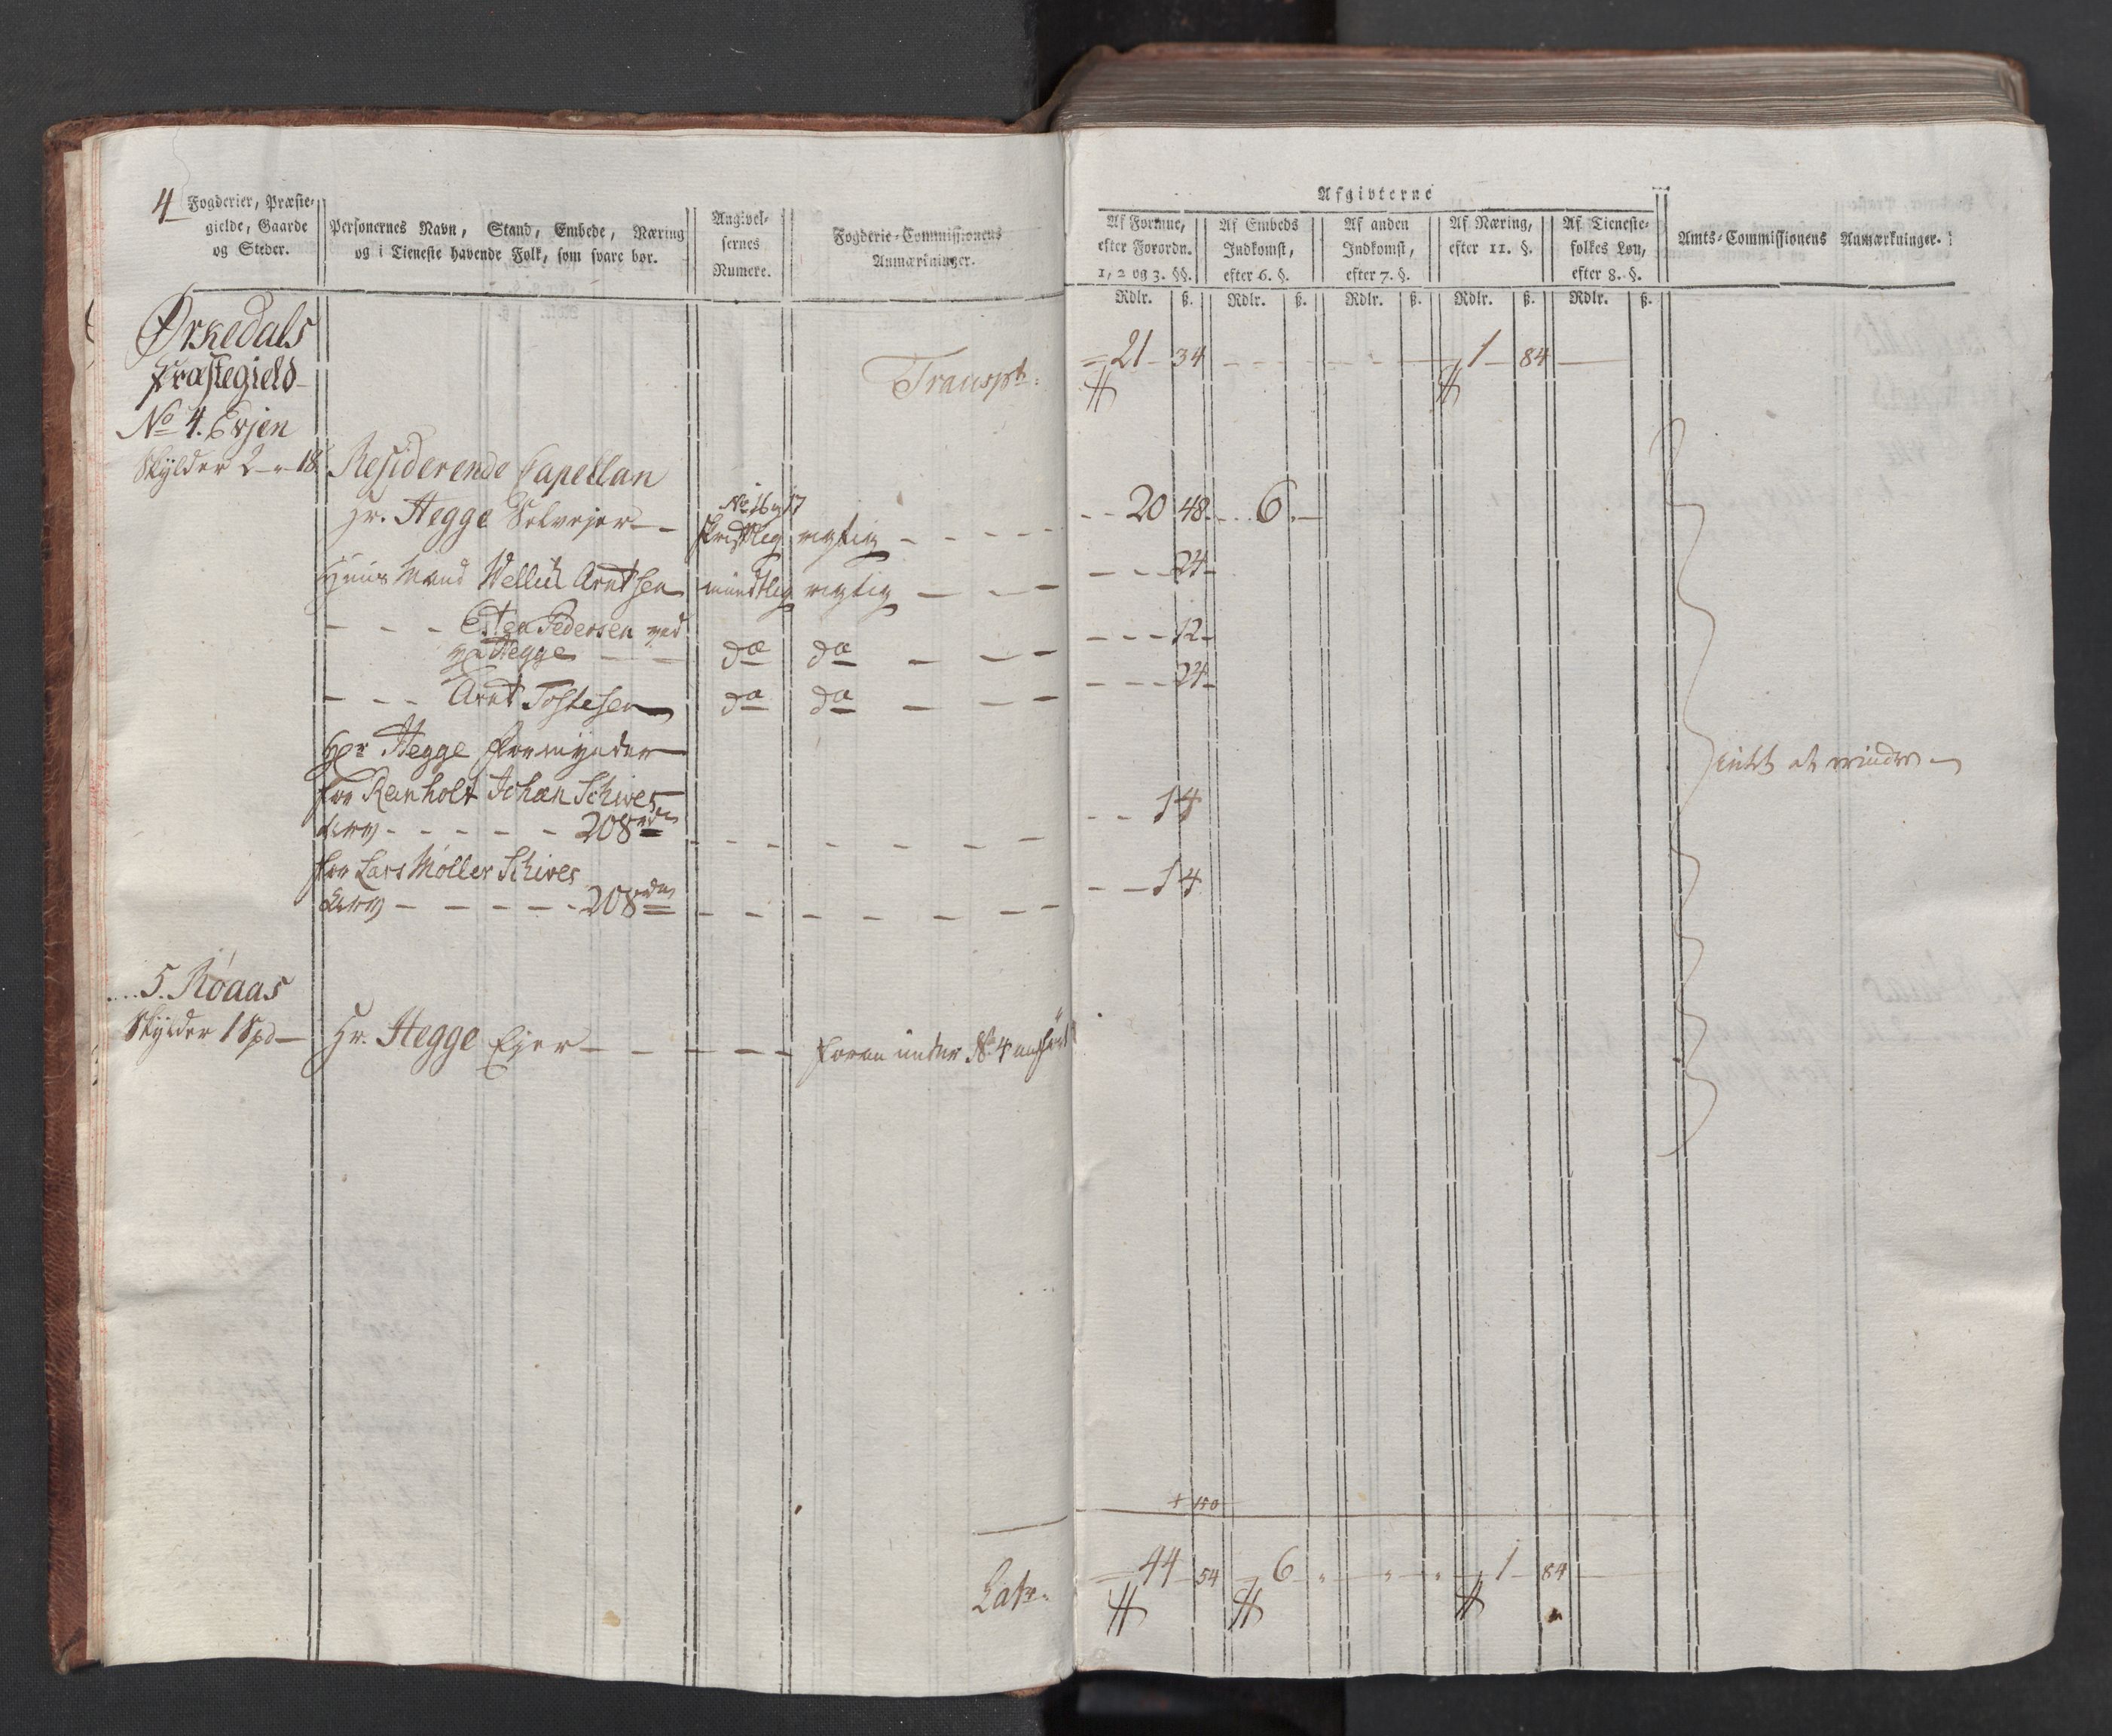 4
Fogderier, Præste-
gielde, Gaarde
og Steder.
Personernes Navn, Stand, Embede, Næring
og i Tieneste havende Folk, som svare bør.
Angivel-
sernes
Numere.
Fogderie-Commissionens
Anmærkninger.
Afgivterne
Af Formue,
efter Forordn.
1, 2 og 3. §§.
Af Embeds
Indkomst,
efter 6. §.
Af anden
Indkomst,
efter 7. §.
Af Næring,
efter 11. §.
Af Tieneste-
folkes Løn,
efter 8. §.
Amts-Commissionens Anmærkninger.
Rdlr. ß. Rdlr. ß. Rdlr. ß. Rdlr. ß. Rdlr. ß.
Ørkedals
Præstegield
Transpt: 21 34 1 84
No 4. Evjen
Skylder 2 - 18
Residerende Capellan
Hr. Hegge Selvejer No 16 17 skriftlig rigtig 20 48 6
Huus Mand Wellik Arntsen mundtlig rigtig 24
Esten Pedersen ved
Hr Hegge do do 12
Arnt Tostesen do do 24
Hr Hegge Formynder
for Reinholt Johan Schives
Arv 208 rd 14
for Lars Møller Schives
Arv 208 rd 14
intet at erindre
5. Roaas
Skylder 1 Spd
Hr. Hegge Ejer foran under No 4 anført
+ 150
Latr. 44 54 6 1 84